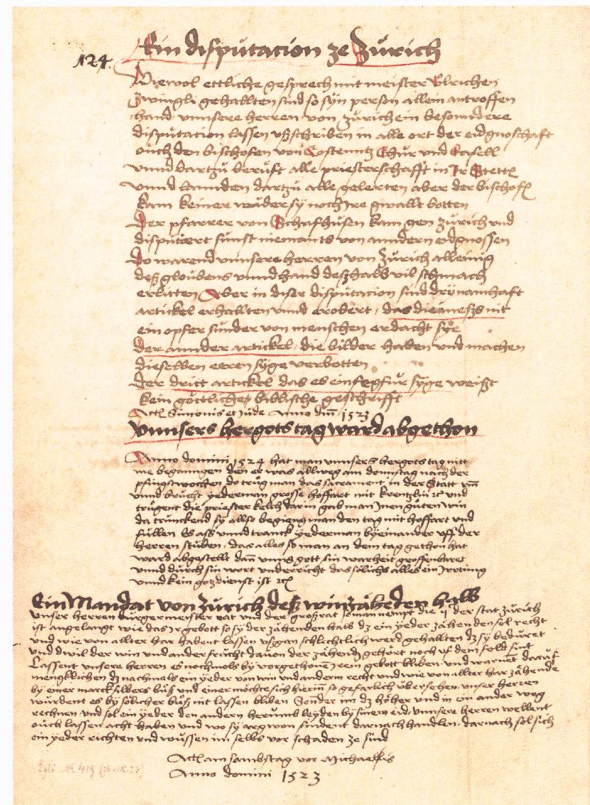 124.
Ein disputacion ze Zürich
Wiewol ettliche gesprech mit meister Ulrichen
Zwingli gehallten sind so syn person allein antroffen
hand unnsere herren von zürich ein besondere
disputation lassen ußschriben in alle ort der eidgnoschaft
ouch den bischofen von Costenntz Chur und Basell
unnd dartzu beruft alle priesterschafft in Ir Stett
unnd lannden dartzu alle gelerten aber der bischof
kam keiner weder sy noch Ire gwallt botten
Der pfarrer von Schafhusen kam gen zürich und
disputiert sunst niemants von anndern eidgnossen
So warend unnsere herren von Zürich alleinig
deß gloubens unnd hand deßhalb vil schmach
erlitten Aber in diser disputation sind dry namhaft
artickel erhallten unnd erobert das die meß nit
ein opfer sunder von menschen erdacht sye
Der annder artickel die bilder haben und machen
dieselben eeren syge verbotten
Der dritt artickel das es ein fegfür syge weißt
kein göttliche biblische geschrifft
Actl Simonis et Jude Anno dni 1523
Unnsers hergots tag ward abgethon
Anno domini 1524 hat man unnsers hergots tag nitt
me beganngen den er was allweg am donstag nach der
pfingstwochen do trug man das sacrament in der Statt
unnd brucht yederman grosse hoffart mit krentzlin und
trugent die priester kelch darin gab man Inen guten win
da trunckend sy allso begieng man den tag mit hoffart und
füllen es aß unnd tranck yederman byeinander uff der
herren stuben das alles so man an dem tag gethon hat
ward abgestellt dann unns gott sin warheit geoffenbaret
unnd durch sin wort underricht das sölichs alles ein Irrung
unnd kein gotzdienst ist
Ein Mandat von Zürich deß winzähenden halb
Unser herren Burgermeister rat und der groß rat so man nempt die der stat zürich
ist angelangt wie das Ir gebott so sy der zähenden halb das ein yeder zähenden sol recht
und wie von allter har geben lassen ußgan schlechtlich werd gehallten das sy beduret
und diwil der win und ander frücht davon der zähend gehört noch uf dem feld sint
Lassent unnsere herren es nochmals by vorgethonem Irem gebott bliben und warnet daruf
mengklichen das nachmals ein yeder von win und anderm recht und wie von allter har zähende
by einer marck silbers buß und einer möchte sich hierin so gefarlich übersehen unser herren
wurdent es by sölicher buß nit lassen bliben Sonder im das höher und in ein ander weg
rechnen und sol ein yeder den andern hierumb leyden by sinem eid unnsere herren wellent
ouch lassen acht haben und wo sy argwon findent darnach handlen darnach sol sich
ein yeder richten und wüssen im selbs vor schaden ze sind
Actum sambstag vor Michaelis
Anno domini 1523